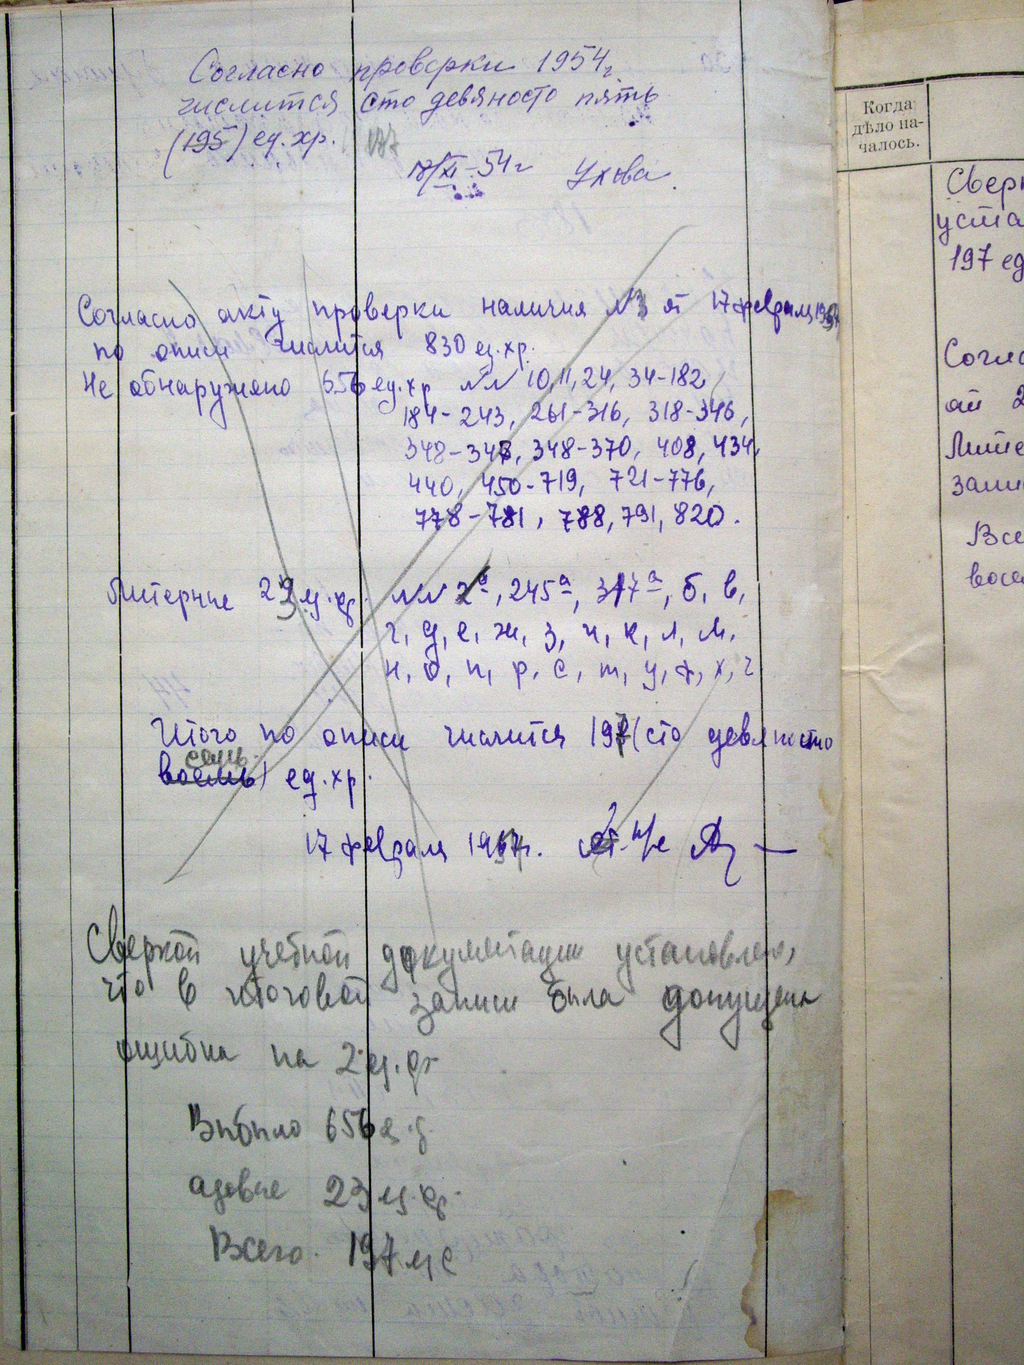 Согласно проверки 1954г.
числится сто девяносто пять
(195) ед.хр. 197
17/XI-54г Ухова
Согласно акту проверки наличия №3 от 17 февраля 1967
по описи числится 830 ед.хр.
Не обнаружено 656 ед.хр №№ 10, 11, 24, 34-182,
184-243, 261-316, 318-346,
348-348, 348-370, 408, 434,
440, 450-719, 721-776,
778-781, 788, 791, 820.
Литерные 23 ед.хр. №№ 2а, 245а, 317а, б, в,
г, д, е, ж, з, и, к, л, м,
н, о, п, р, с, т, у, ф, х, ч
Итого по описи числится 197 (сто девяносто
семь
восемь) ед.хр.
17 февраля 1967г. ст. н/с
Сверкой учетной документации установлено,
что в итоговой записи была допущена
ошибка на 2 ед.хр
Выбыло 656 ед.
23 ед.хр.
Всего 197 ед
Когда
дѣло на-
чалось.
Сверк
уста
197 ед
Согла
2
Лите
запи
Все
восе